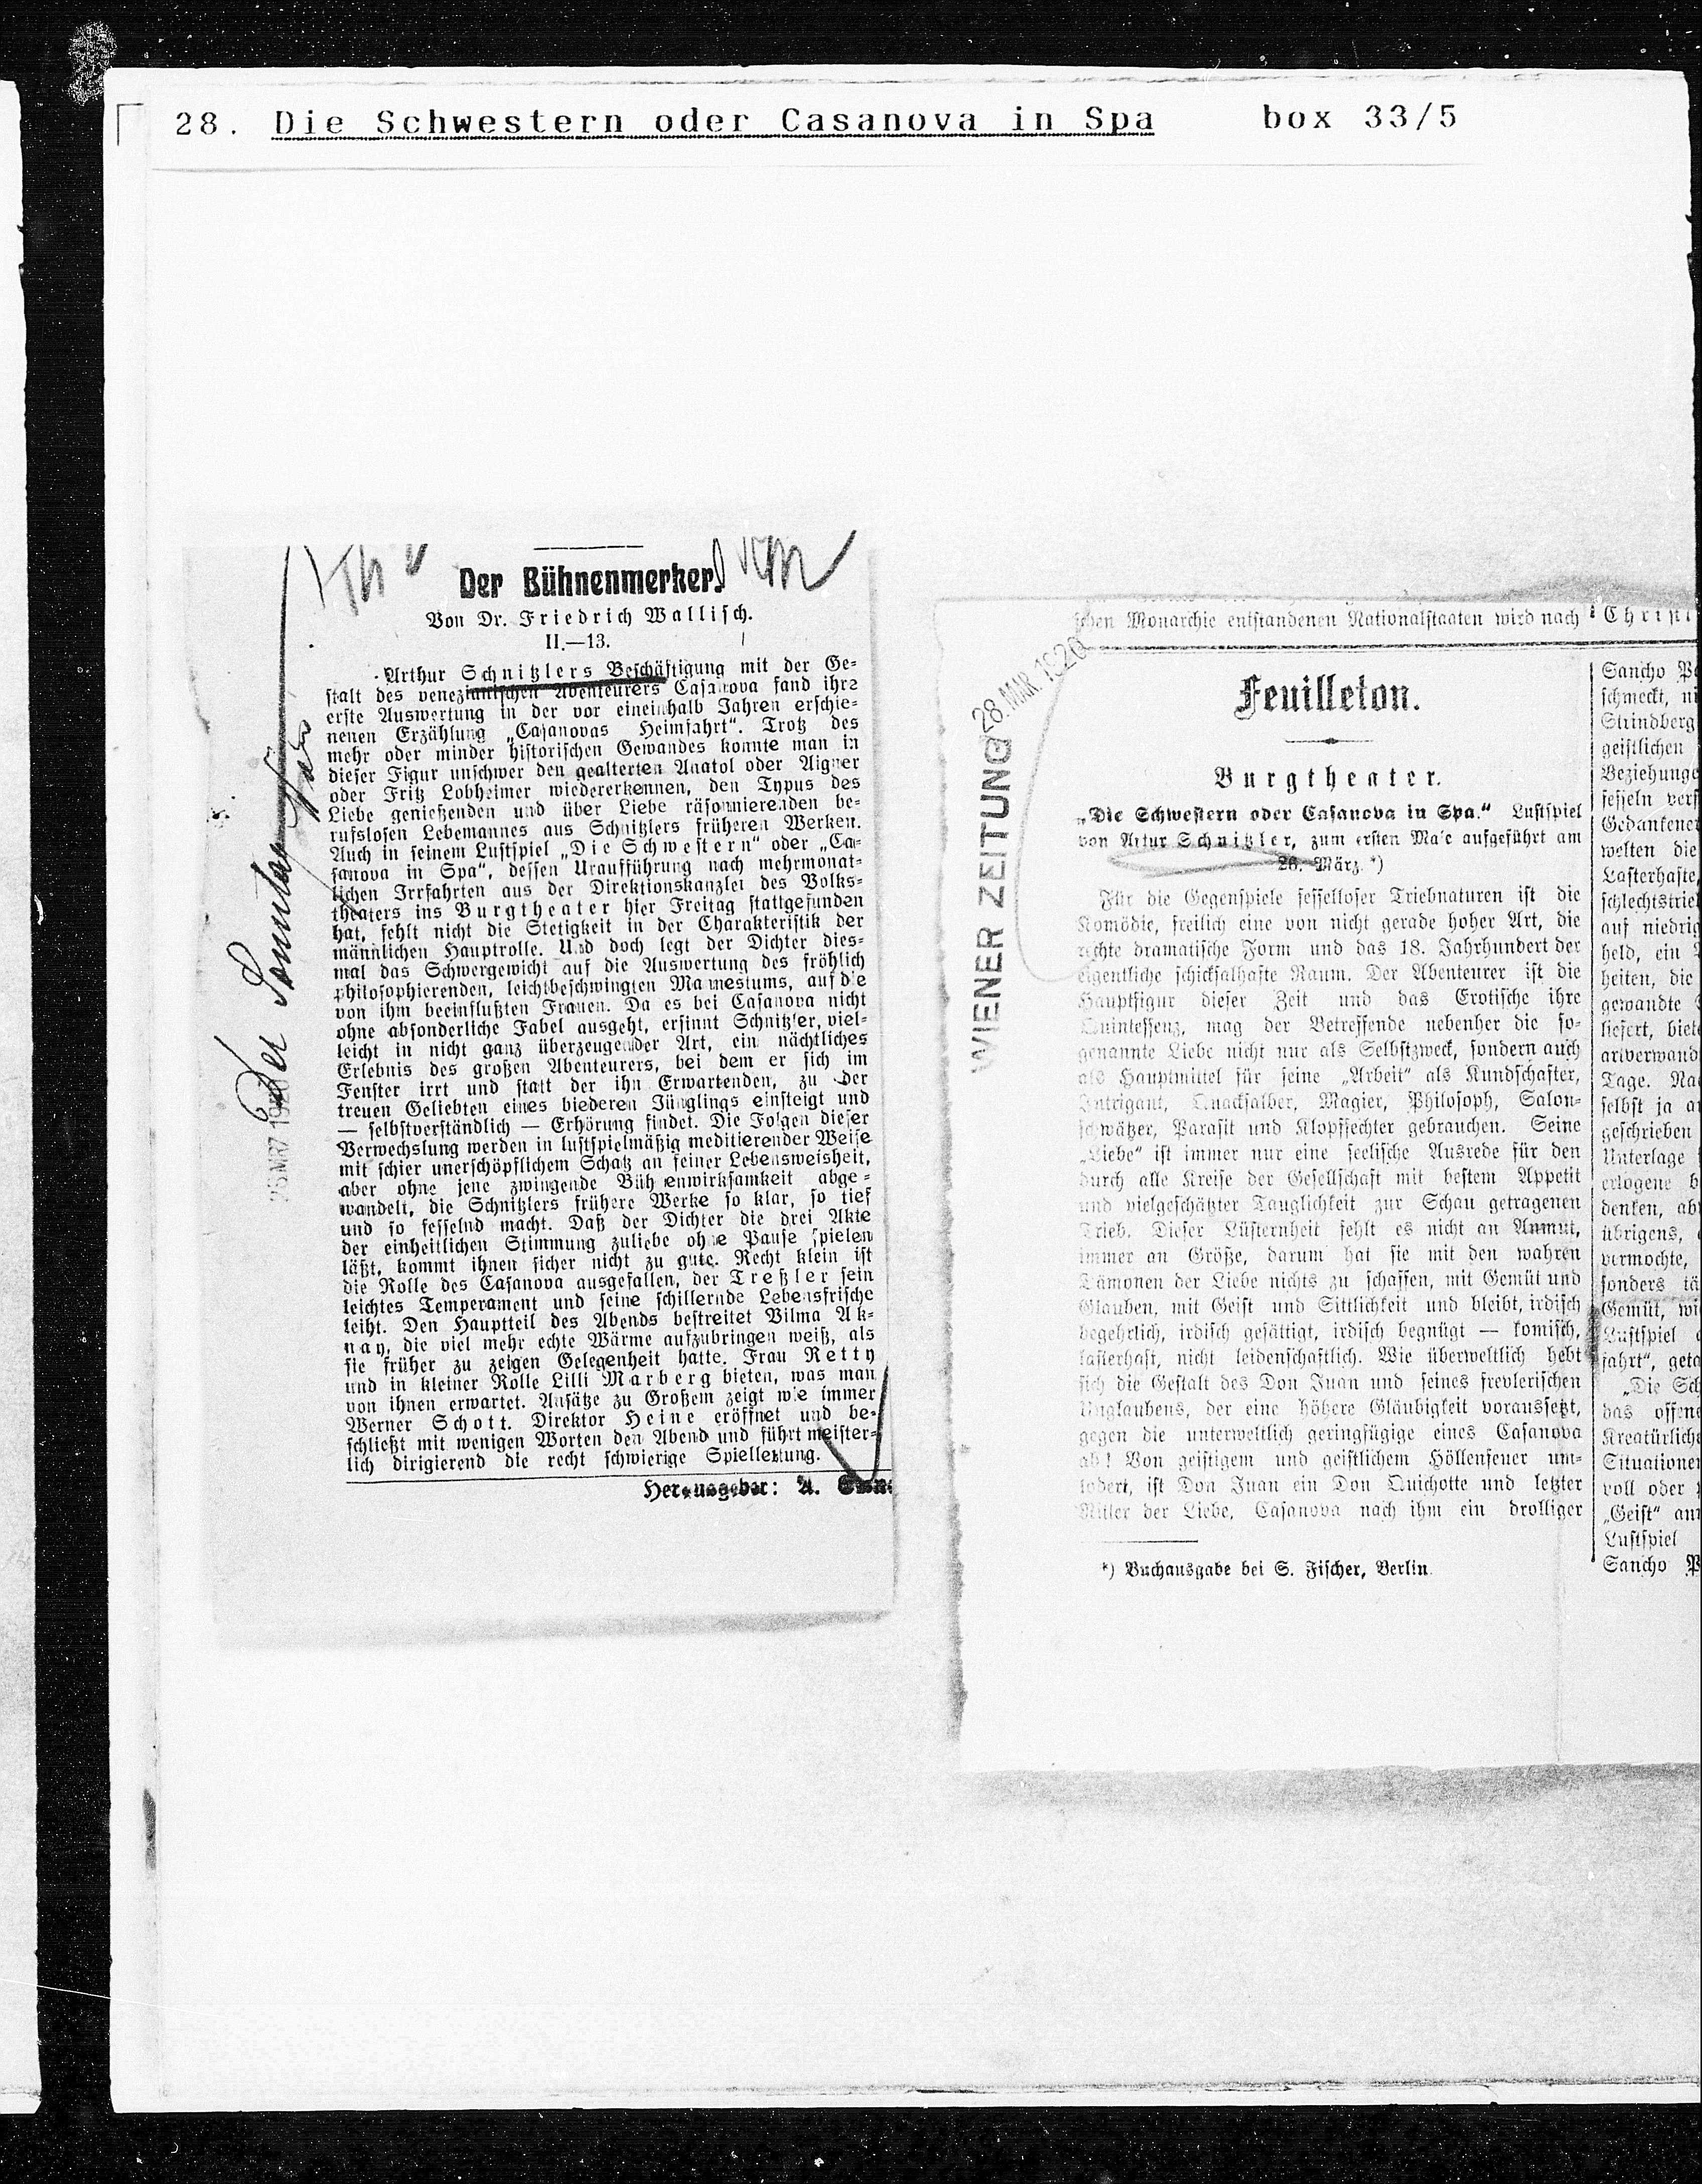 28. Die Schwestern oder Casanova in Spa box 33/5
Der Bühnenmerker.
Von Dr. Friedrich Wallisch.
II.—13.
Arthur Schnitzlers Beschäftigung mit der Ge-
stalt des venezianischen Abenteurers Casanova fand ihre
erste Auswertung in der vor eineinhalb Jahren erschie-
nenen Erzählung „Casanovas Heimfahrt“. Trotz des
mehr oder minder historischen Gewandes konnte man in
dieser Figur unschwer den gealterten Anatol oder Aigner
oder Fritz Lobheimer wiedererkennen, den Typus des
Liebe genießenden und über Liebe räsonnierenden be-
rufslosen Lebemannes aus Schnitzlers früheren Werken.
Auch in seinem Lustspiel „Die Schwestern“ oder „Ca-
sanova in Spa“, dessen Uraufführung nach mehrmonat-
lichen Irrfahrten aus der Direktionskanzlei des Volks-
theaters ins Burgtheater hier Freitag stattgefunden
hat, fehlt nicht die Stetigkeit in der Charakteristik der
männlichen Hauptrolle. Und doch legt der Dichter dies-
mal das Schwergewicht auf die Auswertung des fröhlich
philosophierenden, leichtbeschwingten Mannestums, auf die
von ihm beeinflußten Frauen. Da es bei Casanova nicht
ohne absonderliche Fabel ausgeht, ersinnt Schnitzler, viel-
leicht in nicht ganz überzeugender Art, ein nächtliches
Erlebnis des großen Abenteurers, bei dem er sich im
Fenster irrt und statt der ihn Erwartenden, zu der
treuen Geliebten eines biederen Jünglings einsteigt und
— selbstverständlich — Erhörung findet. Die Folgen dieser
Verwechslung werden in lustspielmäßig meditierender Weise
mit schier unerschöpflichem Schatz an feiner Lebensweisheit,
aber ohne jene zwingende Bühnenwirksamkeit abge-
wandelt, die Schnitzlers frühere Werke so klar, so tief
und so fesselnd macht. Daß der Dichter die drei Akte
der einheitlichen Stimmung zuliebe ohne Pause spielen
läßt, kommt ihnen sicher nicht zu gute. Recht klein ist
die Rolle des Casanova ausgefallen, der Treßler sein
leichtes Temperament und seine schillernde Lebensfrische
leiht. Den Hauptteil des Abends bestreitet Vilma Ak-
nay, die viel mehr echte Wärme aufzubringen weiß, als
sie früher zu zeigen Gelegenheit hatte. Frau Retty
und in kleiner Rolle Lilli Marberg bieten, was man
von ihnen erwartet. Ansätze zu Großem zeigt wie immer
Werner Schott. Direktor Heine eröffnet und be-
schließt mit wenigen Worten den Abend und führt meister-
lich dirigierend die recht schwierige Spielleitung.
Herausgeber: A.
Der
WIENER ZEITUNG
28. MAR. 1920
schen Monarchie entstandenen Nationalstaaten wird nach
Feuilleton.
Burgtheater.
„Die Schwestern oder Casanova in Spa.“ Lustspiel
von Artur Schnitzler, zum ersten Male aufgeführt am
26. März.*)
Für die Gegenspiele fesselloser Triebnaturen ist die
Komödie, freilich eine von nicht gerade hoher Art, die
rechte dramatische Form und das 18. Jahrhundert der
eigentliche schicksalhafte Raum. Der Abenteurer ist die
Hauptfigur dieser Zeit und das Erotische ihre
Quintessenz, mag der Betreffende nebenher die so-
genannte Liebe nicht nur als Selbstzweck, sondern auch
als Hauptmittel für seine „Arbeit“ als Kundschafter,
Intrigant, Quacksalber, Magier, Philosoph, Salon-
schwätzer, Parasit und Klopffechter gebrauchen. Seine
„Liebe“ ist immer nur eine seelische Ausrede für den
durch alle Kreise der Gesellschaft mit bestem Appetit
und vielgeschätzter Tauglichkeit zur Schau getragenen
Trieb. Dieser Lüsternheit fehlt es nicht an Anmut,
immer an Größe, darum hat sie mit den wahren
Dämonen der Liebe nichts zu schaffen, mit Gemüt und
Glauben, mit Geist und Sittlichkeit und bleibt, irdisch
begehrlich, irdisch gesättigt, irdisch begnügt — komisch,
lasterhaft, nicht leidenschaftlich. Wie überweltlich hebt
sich die Gestalt des Don Juan und seines frevlerischen
Unglaubens, der eine höhere Gläubigkeit voraussetzt,
gegen die unterweltlich geringfügige eines Casanova
ab! Von geistigem und geistlichem Höllenfeuer um-
lodert, ist Don Juan ein Don Quichotte und letzter
Ritter der Liebe, Casanova nach ihm ein drolliger
*) Buchausgabe bei S. Fischer, Berlin.
Christi
Sancho P
schmeckt, ni
Strindberg
geistlichen
Beziehunge
fesseln vers
Gedankene
welten die
Lasterhafte,
schlechtstrie
auf niedrig
held, ein
heiten, die
gewandte
liefert, biet
artverwand
Tage. Na
selbst ja a
geschrieben
Unterlage
erlogene b
denken, ab
übrigens,
vermochte,
sonders tä
Gemüt, wi
Lustspiel
fahrt“, geta
„Die Sch
das offen
Kreatürliche
Situationen
voll oder
„Geist“ an
Lustspiel
Sancho P